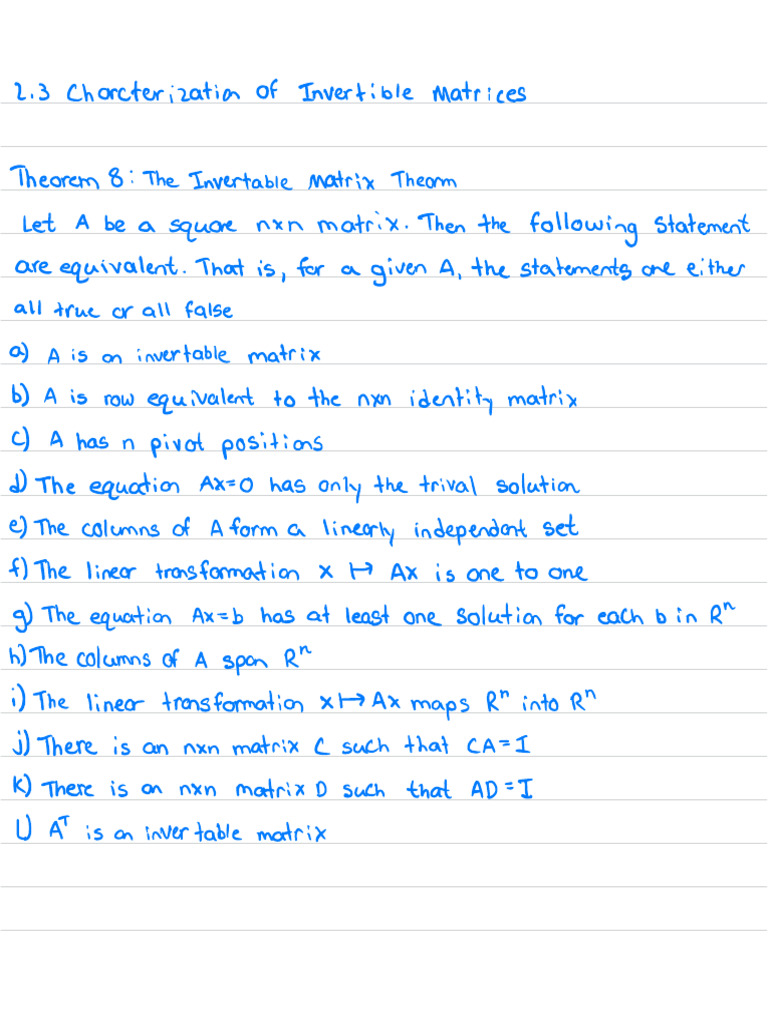 2.3 Charcterization of Invertible Matrices
Theorem 8: The Invertable Matrix Theorm
Let A be a square nxn matrix. Then the following statement
are equivalent. That is, for a given A, the statements are either
all true or all false
a) A is an invertable matrix
b) A is row equivalent to the nxn identity matrix
c) A has n pivot positions
d) The equation Ax=0 has only the trival solution
e) The columns of A form a linearly independent set
f) The linear transformation x ↦ Ax is one to one
g) The equation Ax=b has at least one solution for each b in Rⁿ
h) The columns of A span Rⁿ
i) The linear transformation x ↦ Ax maps Rⁿ into Rⁿ
j) There is an nxn matrix C such that CA=I
k) There is an nxn matrix D such that AD=I
l) Aᵀ is an invertable matrix